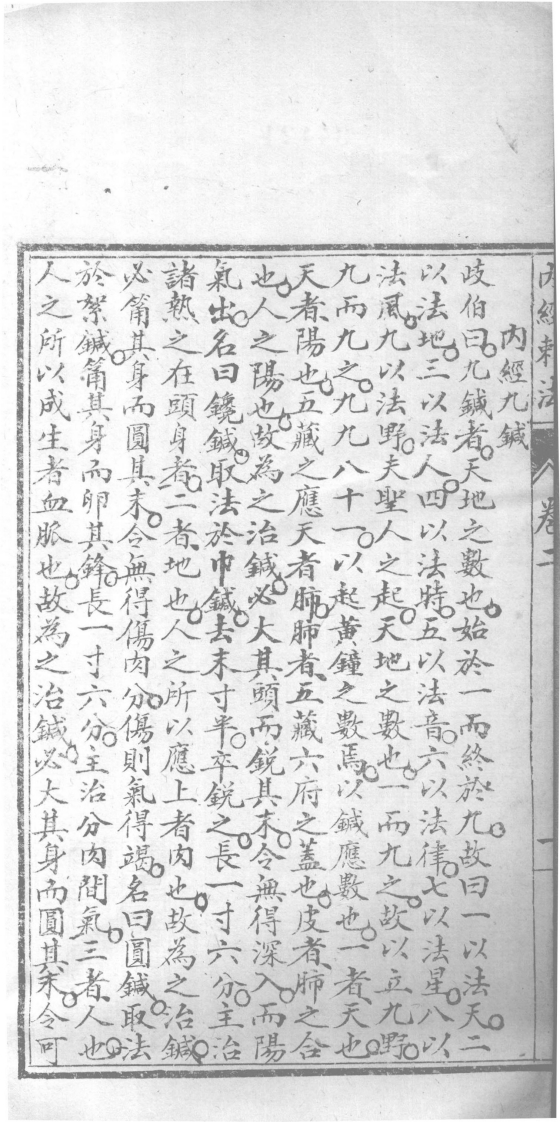 內經刺法 卷二 一
內經九鍼
歧伯曰。九鍼者。天地之數也。始於一而終於九。故曰一以法天。二
以法地。三以法人。四以法時。五以法音。六以法律。七以法星。八以
法風。九以法野。夫聖人之起。天地之數也。一而九之。故以立九野。
九而九之。九九八十一。以起黃鐘之數焉。以鍼應數也。一者。天也。
天者。陽也。五藏之應天者肺。肺者。五藏六府之蓋也。皮者。肺之合
也。人之陽也。故為之治鍼。必大其頭而銳其末。令無得深入。而陽
氣出。名曰鑱鍼。取法於巾鍼。去末寸半。卒銳之。長一寸六分。主治
諸熱之在頭身者。二者地也。人之所以應上者肉也。故為之治鍼。
必筩其身而圓其末。令無得傷肉分。傷則氣得竭。名曰圓鍼。取法
於絮鍼。筩其身而卵其鋒。長一寸六分。主治分肉間氣。三者。人也。
人之所以成生者血脈也。故為之治鍼。必大其身而圓其末。令可